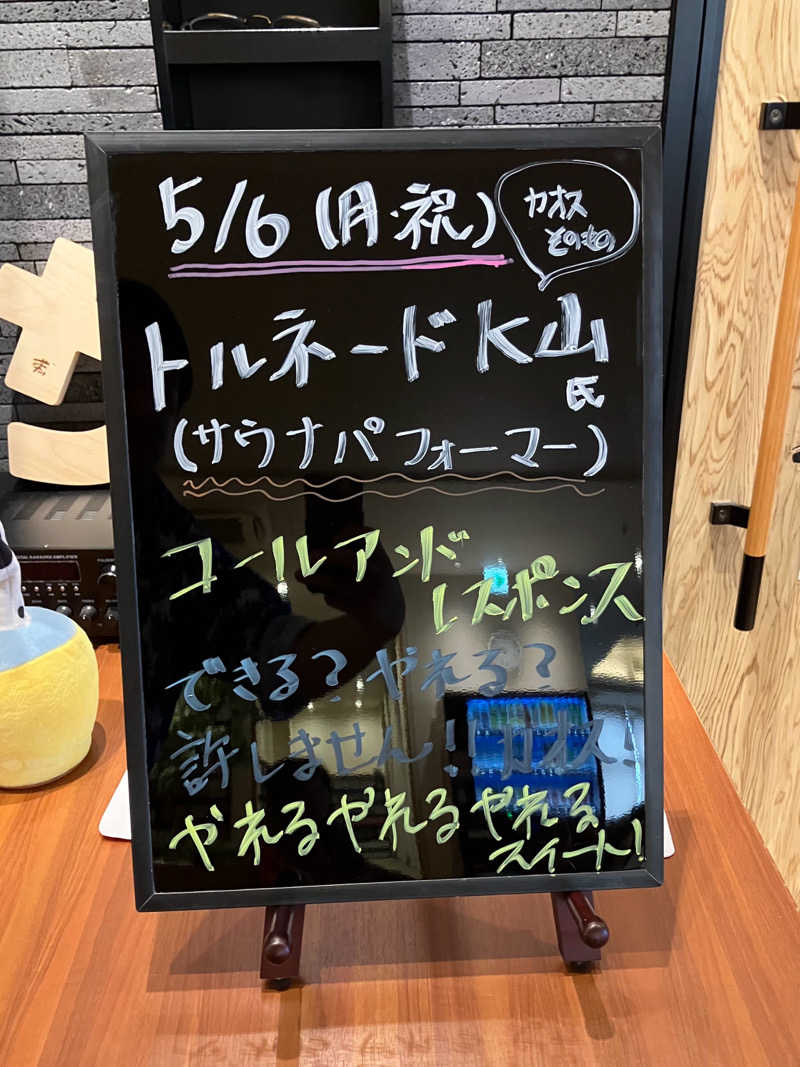 5/6(月・祝)
カオス
そのもの
トルネードK山
氏
(サウナパフォーマー)
コールアンド
レスポンス
できる?やれる?
許しません!!カオス!
やれるやれるやれる
スイート!